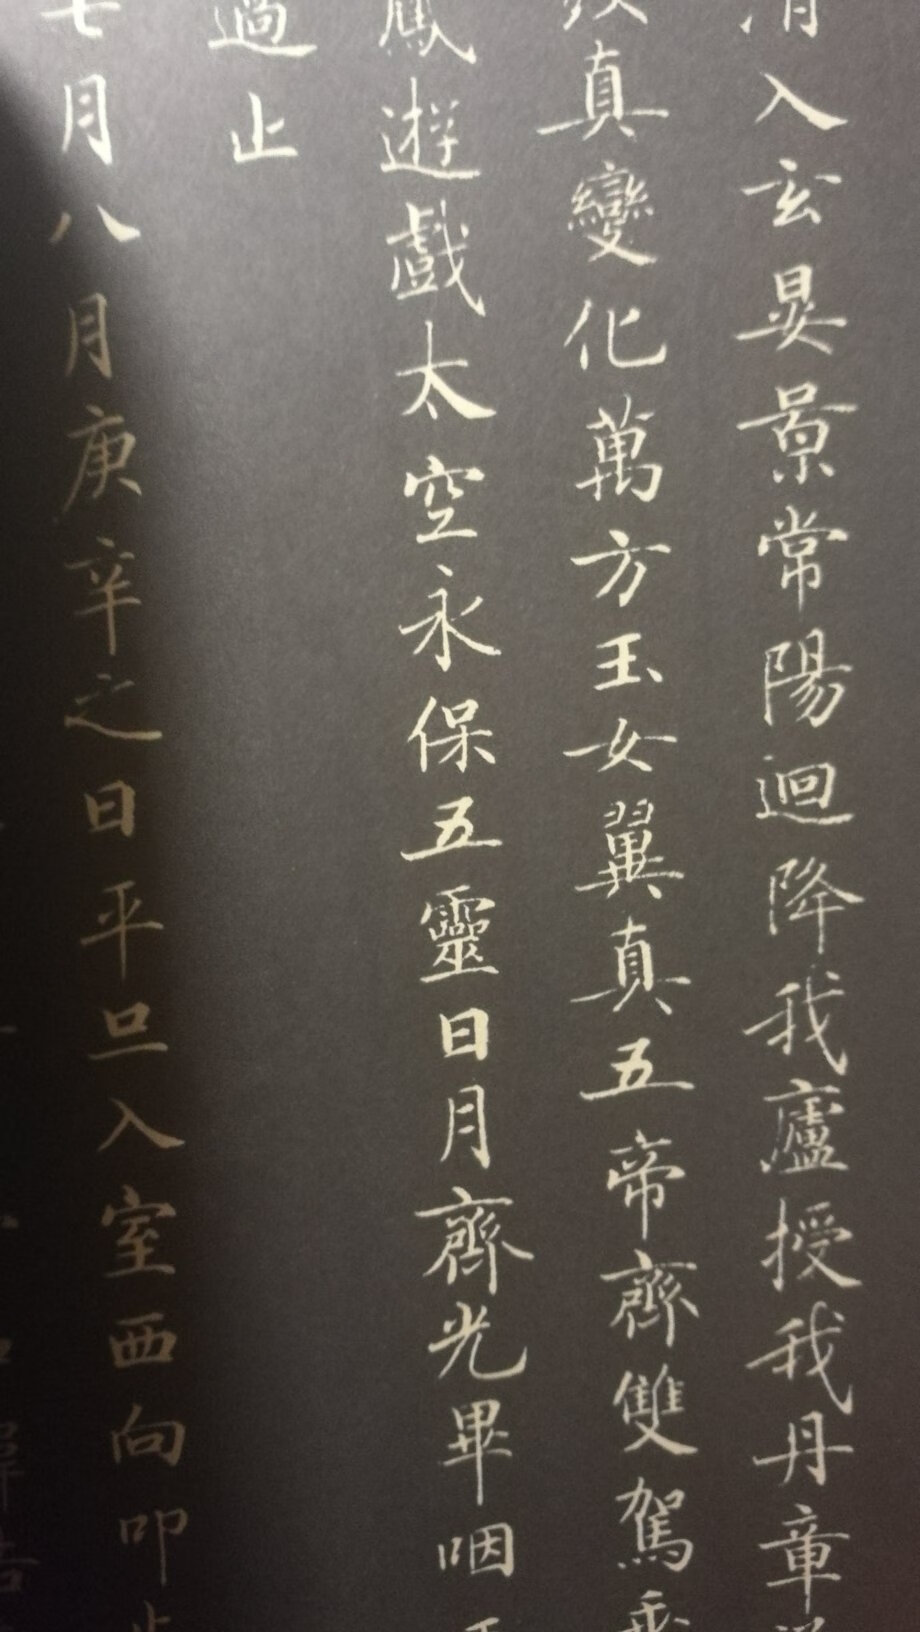 入玄晃景常陽迴降我廬授我丹章
真變化萬方玉女翼真五帝齊雙駕
鳳遊戲太空永保五靈日月齊光畢咽
過止
七月八月庚辛之日平旦入室西向叩